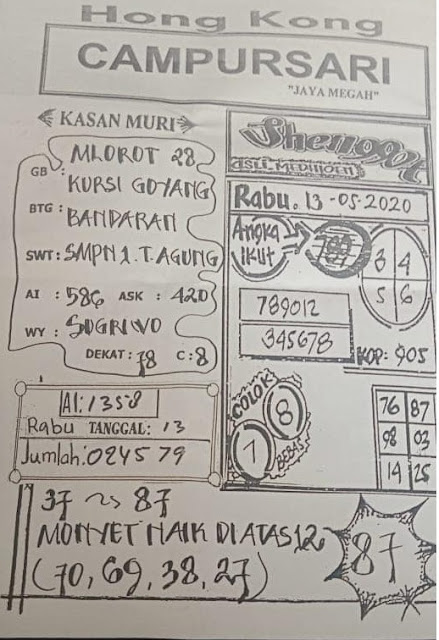 Hong Kong
CAMPURSARI
"JAYA MEGAH"
KASAN MURI
MLOROT 28
GB : KURSI GOYANG
BTG : BANDARAN
SWT : SMPN 1. T. AGUNG
AI : 586 ASK : 420
WY : SUGRIWO
DEKAT : 78 C : 8
AI : 1358
Rabu TANGGAL : 13
Jumlah : 024579
ASLI MEDIIOEN
Rabu. 13-05-2020
Angka
IKUT
3 4
5 6
789012
345678
KOP : 905
COLOK
1 8
BEBAS
76 87
98 03
14 25
37 ~> 87
MONYET NAIK DI ATAS 12
(70, 69, 38, 27)
87